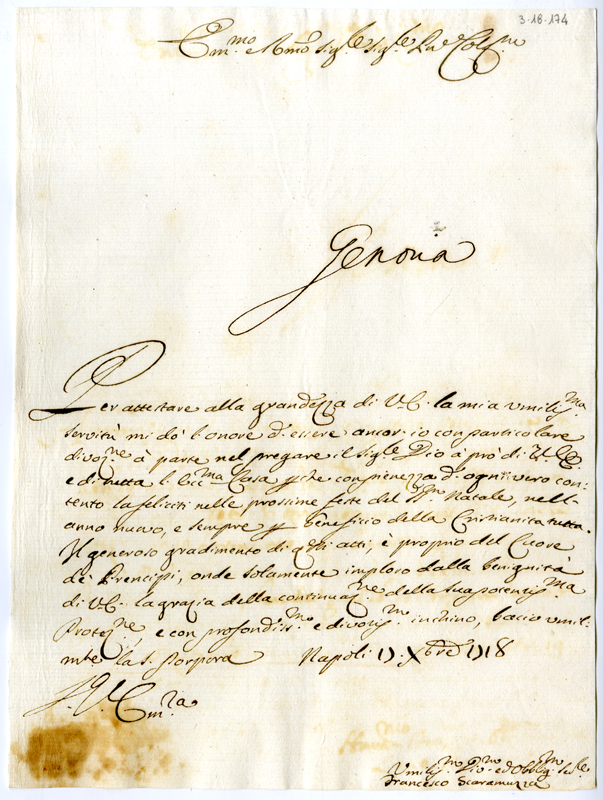 3-18-174
Em.mo e Rmo Sig.re Sig.re P.ne Col.mo
Genova
Per attestare alla grandezza di V.E. la mia umiliss.ma
servitù mi dò l'onore d'essere ancor io con particolare
divoz.ne à parte nel pregare il Sig.re Dio à prò di V.E.
e di tutta l'Ecc.ma Casa che con pienezza d'ogni vero con-
tento la feliciti nelle prossime feste del S. Natale, nell'
anno nuovo, e sempre p beneficio della Cristianita tutta.
Il generoso gradimento di q.sti atti, è proprio del Cuore
de Prencipi, onde solamente imploro dalla benignità
di V.E. la grazia della continuaz.ne della sua potentiss.ma
Protez.ne, e con profondiss.mo e divotiss.mo inchino, bacio umil-
mte la S. Porpora Napoli 17 Xbre 1718
V. Em.za
Umiliss.mo Div.mo ed Obblig.mo Se.re
Francesco Scaramuzza